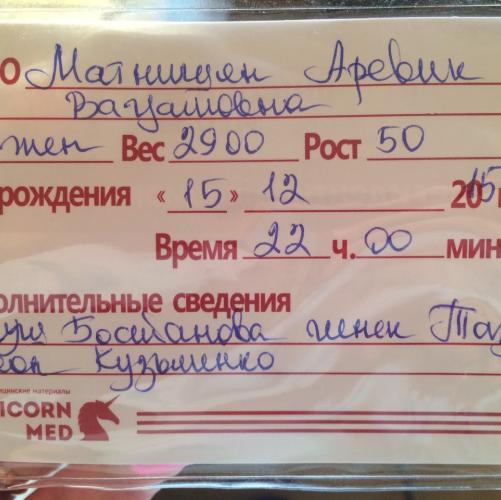 О Матнишян Аревик
Вагушовна
жен Вес 2900 Рост 50
рождения « 15 » 12 2015
Время 22 ч. 00 мин
олнительные сведения
Босманова гинек
Кузьменко
ицинские материалы
ICORN
MED